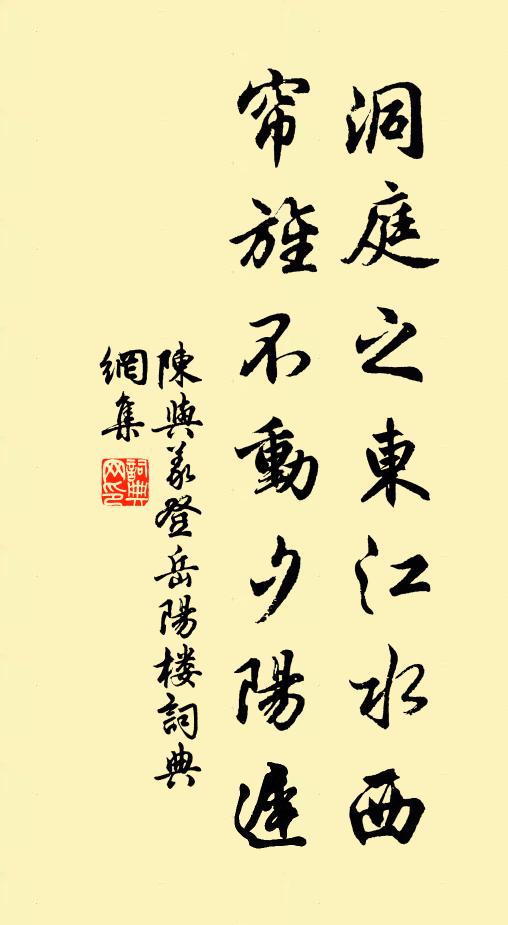 洞庭之東江水西
帘旌不動夕陽遲
陳與義登岳陽楼詞典
網集
詞典
网印